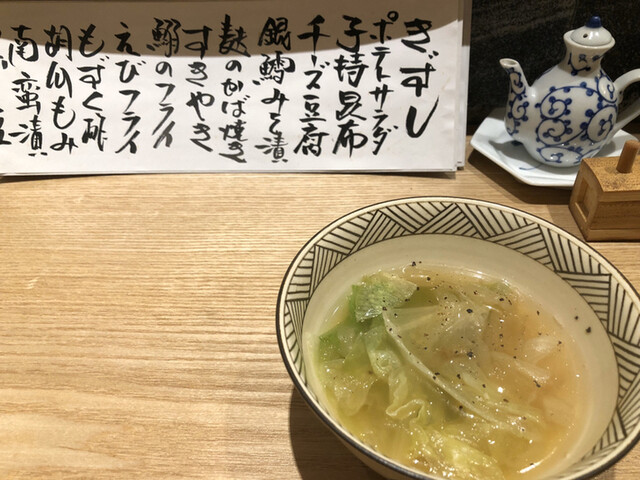 きずし
ポテトサラダ
子持昆布
チーズ豆腐
銀鱈みそ漬
麸のかば焼き
すきやき
鰯のフライ
えびフライ
もずく酢
胡瓜もみ
南蛮漬